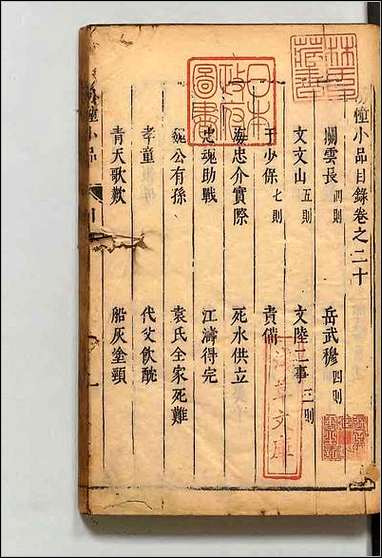 林氏藏書
日本政府圖書
幢小品目錄卷之二十
關雲長 四則 岳武穆 四則
文文山 五則 文陸二事 三則
于少保 七則 責備
海忠介實際 死水供立
忠魂助戰 江濤得完
魏公有孫 袁氏全家死難
孝童 代父飲酖
青天歌歎 船灰塗頸
幢小品
淺草文庫